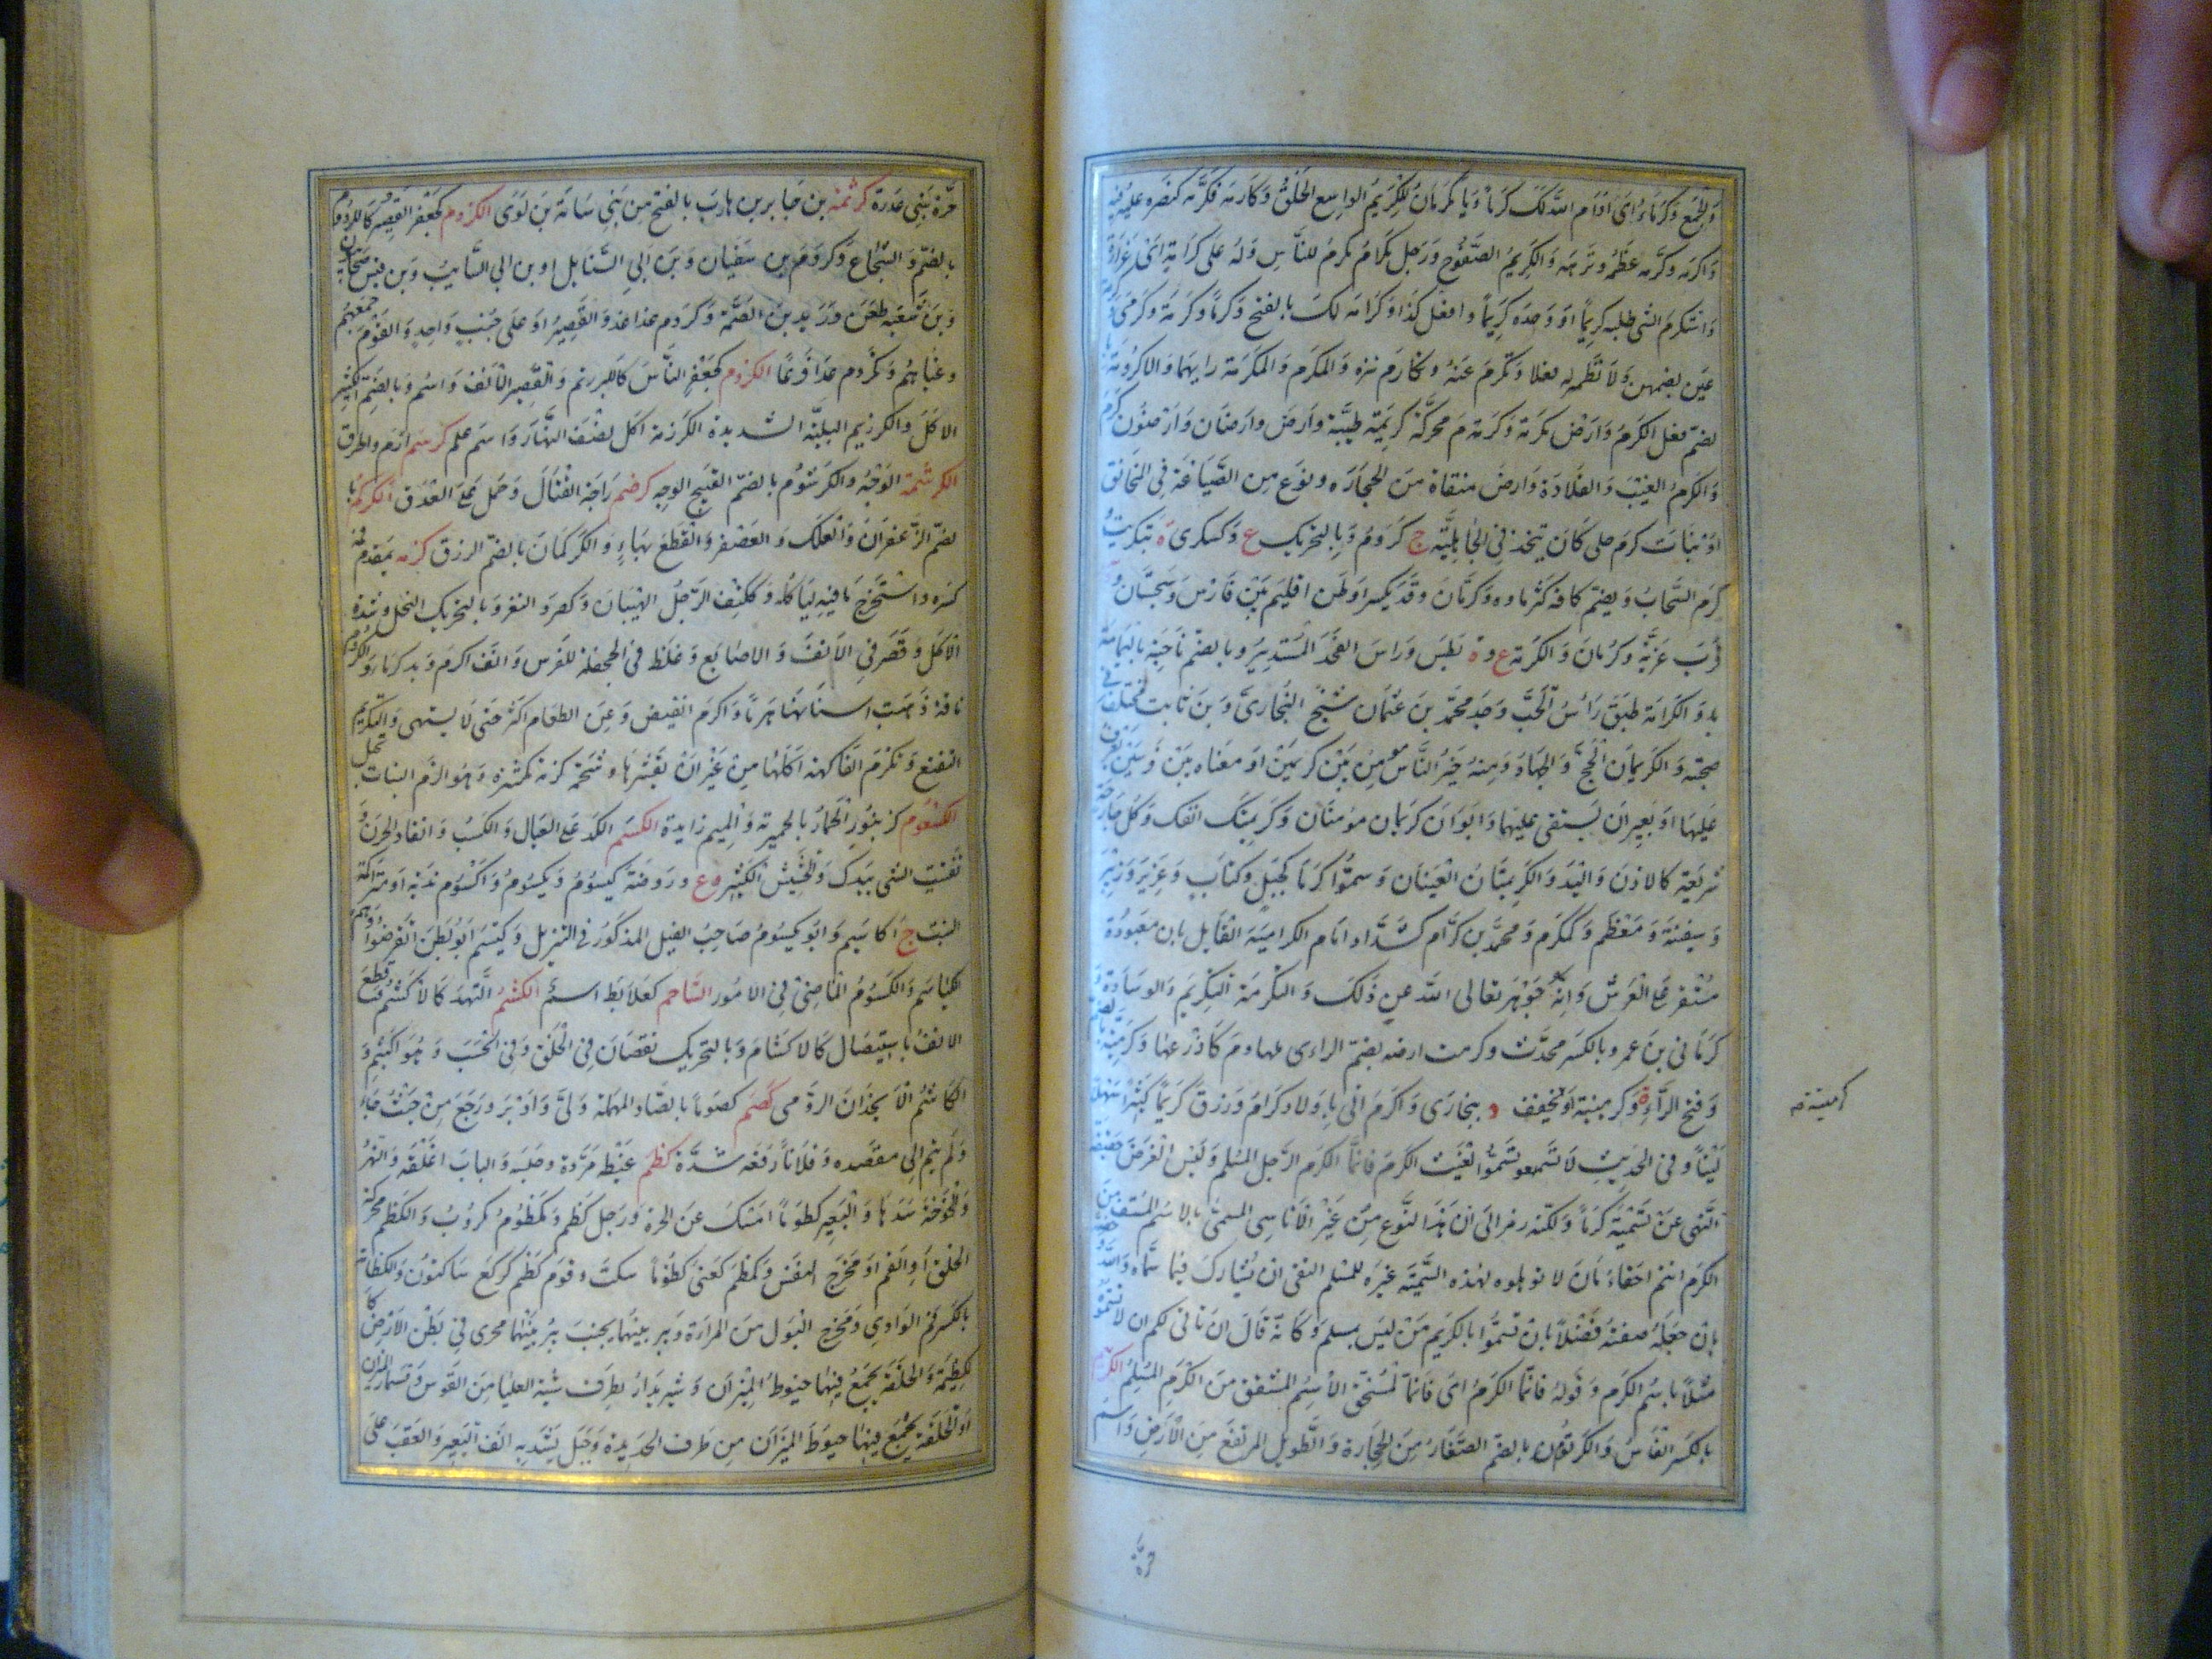 وللجمع وكرماء اى ادام الله لك كرما ويا مكرمان للكريم الواسع الخلق وكارمه فكرمه كنصره غلبه فيه
واكرمه وكرمه عظمه ونزهه والكريم الصفوح ورجل مكرام مكرم للناس وله على كرامة اى عزازة
واستكرم الشئ طلبه كريما او وجده كريما وافعل كذا وكرامة لك بالفتح وكرما وكرمة وكرمى
عين بضمهن ولا تظهر له فعلا وتكرم عنه وتكارم تنزه والمكرم والمكرمة رايهما والاكرومة
بضم فعل الكرم وارض مكرمة وكرمة م محركة كريمة طيبة وارض وارضان وارضون كرم
والكرم العنب والقلادة وارض منقاة من الحجارة ونوع من الصياغة فى المخانق
او بنات كرم حلى كان يتخذ فى الجاهلية ج كروم وبالتحريك ع وكسكرى ة بتكريت
كرم السحاب ويضم كافه كثر ماوه وكرمان وقد يكسر او لحن اقليم بين فارس وسجستان
قرب غزنة ومكران والكرمة ع و ة بطبس وراس الفخذ المستدير وبالضم ناحية باليمامة
بدو الكرامة طبق راس الحب وجد محمد بن عثمان شيخ البخارى وبن ثابت مختلف فى
صحبته والكريمان الحج والجهاد ومنه خير الناس مومن بين كريمين او معناه بين فرسين يغزو
عليهما او بعيرين يستقى عليهما وابوان كريمان مومنان وكريمتك انفك وكل جارحة
شريفة كالاذن واليد والكريمتان العينان وسموا كرما كجبل وكتاب وعزيز وزبير
وسفينة ومعظم ومكرم ومحمد بن كرام كشداد امام الكرامية القايل بان معبوده
مستقر على العرش وانه جوهر تعالى الله عن ذلك والتكرمة التكريم والوسادة
كرمانى بن عمرو بالكسر محدث وكرمت ارضه بضم الراء
وفتح الراء ة وكرمينية وتخفف ة ببخارى واكرم اتى باولاد كرام ورزق كريم كثير
وفى الحديث لا تسموا العنب الكرم فانما الكرم الرجل المسلم وليس الغرض حقيقة
النهى عن تسميته كرما ولكنه رمز الى ان هذا النوع من غير الاناسى المسمى بالاسم المشتق من
الكرم انتم احقاء بان لا توهلوه لهذه التسمية غيرة للمسلم التقى ان يشارك فيما سماه الله
بان جعله صفته فضلا بان تسموا بالكريم من ليس بمسلم وكانه قال ان تاتى لكم ان لا تسموه
مثلا باسم الكرم وقوله فانما الكرم اى فانما المستحق للاسم المشتق من الكرم المسلم
بالكسر الفاس والكرتوم بالضم الصفا من الحجارة والطويل المرتفع من الارض واسم
حرة
حرة بنى عذرة كرثمة بن جابر بن هراب بالفتح من بنى سامة بن لوى الكردم كجعفر القصير كالكردوم
بالضم والشجاع وكردم بن سفيان وبن ابى السنابل او بن ابى السايب وبن قيس صحابيون
وبن شعبة طعن دريد بن الصمة وكردم عدا عدو القصير او على جنب واحد والقوم جمعهم
وعباهم وتكردم عدا فزعا الكرزم كجعفر الفاس كالكرزيم والقصير الانف واسم وبالضم الكثير
الاكل والكرزيم البلية الشديدة الكرزمة اكل نصف النهار واسم علم كرسم ازم واطرق
الكرشمة الوجه والكرشوم بالضم القبيح الوجه كرضم واجه القتال وحمل على العدو الكركم
بضم الزعفران والعلك والعصفر والقطعة بهاء والكركمان بالضم الرزق كزمه بمقدم فمه
كسره واستخرج ما فيه لياكله وككتف الرجل الهيبان وكصرد النغر وبالتحريك البخل وشدة
الاكل وقصر فى الانف والاصابع وغلظ فى الجحفلة للفرس وانف اكرم ويد كزماء والكزوم
ناقة ذهبت اسنانها هرما واكزم انقبض وعن الطعام اكثر حتى لا يشتهى والتكزيم
التفقع وتكزم الفاكهة اكلها من غير ان يقشرها
الكسعوم كزنبور الحمار بالحميرية والميم زايدة الكسم الكد على العيال والكسب وايقاد الحرب
تفتيت الشئ بيدك والحشيش الكثير وع وروضة كيسوم ويكسوم واكسوم ندية او متراكمة
النبت ج اكاسيم وابو يكسوم صاحب الفيل المذكور فى التنزيل وكيسم ابو بطن انقرضوا وهم
الكياسم والكسوم الماضى فى الامور الكشاحم كعلابط اسم الكشم الفهد كالاكشم وقطع
الانف باستيصال كالاكتشام وبالتحريك نقصان فى الخلق وفى الحسب وهو اكشم و
الكاشم الانجذان الرومى كصم كصوما بالصاد المهملة ولى وادبر ورجع من حيث جاء
ولم يتم الى مقصده وفلانا دفعه شدة كظم غيظه رده وحبسه والباب اغلقه والنهر
والخوخة سدها والبعير كظوما امسك عن الجرة ورجل كظيم ومكظوم مكروب والكظم محركة
الحلق او الفم او مخرج النفس وكظم كعنى كظوما سكت وقوم كظم كركع ساكتون والكظامة
بالكسر فم الوادى ومخرج البول من المراة وبير بينها بجنب بير بينهما مجرى فى بطن الارض
كظيمة والحلقة يجمع فيها خيوط الميزان وسير يدار بطرف سية العليا من القوس ومسمار الميزان
او الحلقة يجمع فيها خيوط الميزان من طرف الحديدة وحبل يشد به انف البعير والعقب على